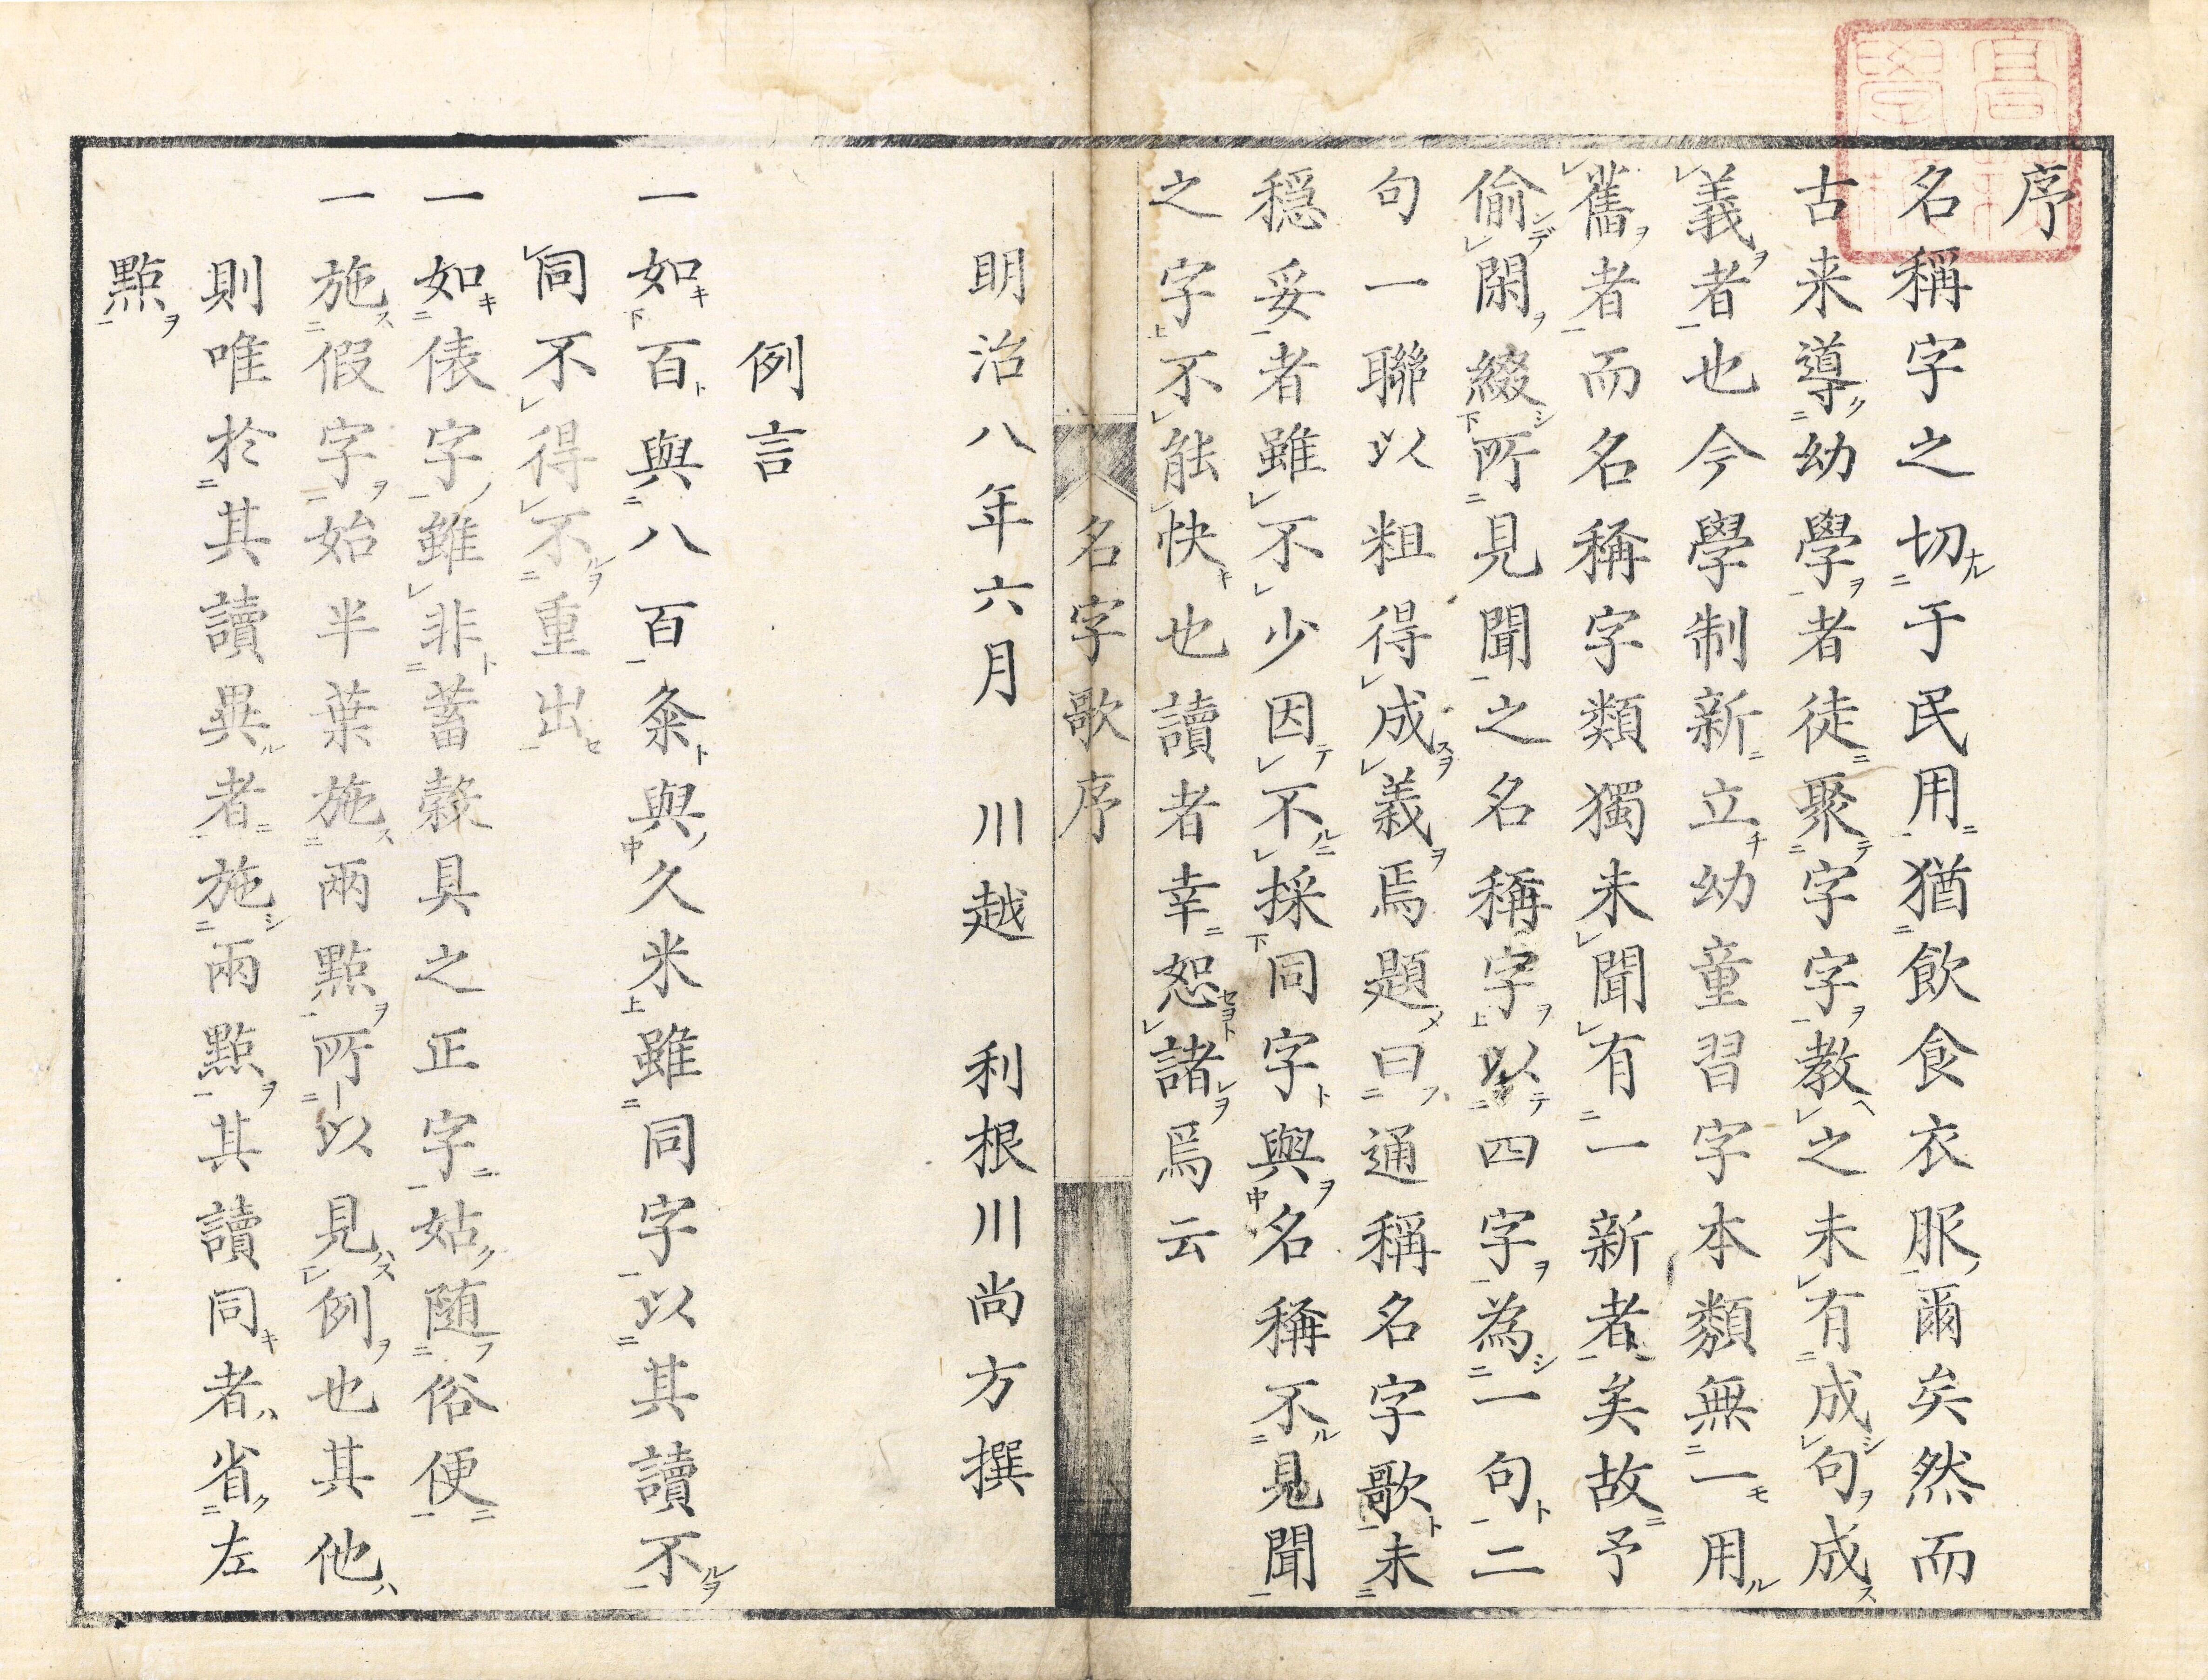 序
名稱字之切于民用猶飲食衣服爾矣然而
古来導幼學者徒聚字字教之未有成句成
義者也今學制新立幼童習字本類無一用
舊者而名稱字類獨未聞有一新者矣故予
偷閑綴所見聞之名稱字以四字為一句二
句一聯以粗得成義焉題曰通稱名字歌未
穏妥者雖不少因不採同字與名稱不見聞
之字不能快也讀者幸恕諸焉云
名字歌序
明治八年六月 川越 利根川尚方撰
例言
一如百與八百粂與久米雖同字以其讀不
同不得不重出
一如俵字雖非蓄穀具之正字姑随俗便
一施假字始半葉施兩點所以見例也其他
則唯於其讀異者施兩點其讀同者省左
點